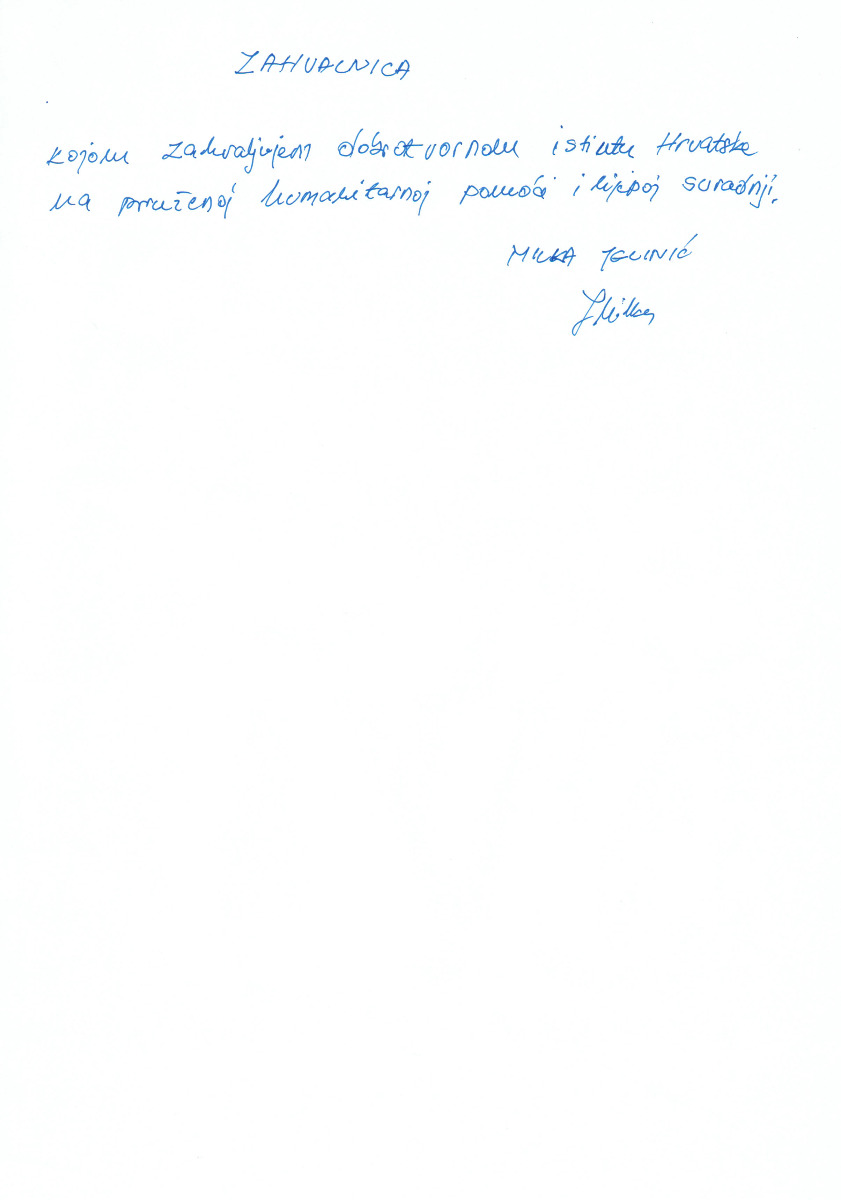 ZAHVALNICA
kojom zahvaljujem dobrotvornom istinu Hrvatske
na pruženoj humanitarnoj pomoći i lijepoj suradnji.
MILKA JELINIĆ
JMilka